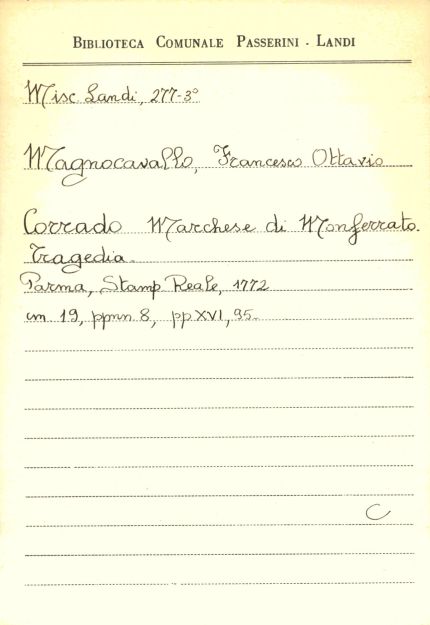 BIBLIOTECA COMUNALE PASSERINI - LANDI
Misc. Landi, 277-3°
Magnocavallo, Francesco Ottavio
Corrado Marchese di Monferrato.
Tragedia.
Parma, Stamp. Reale, 1772
cm 19, ppnn 8, pp XVI, 95.
C